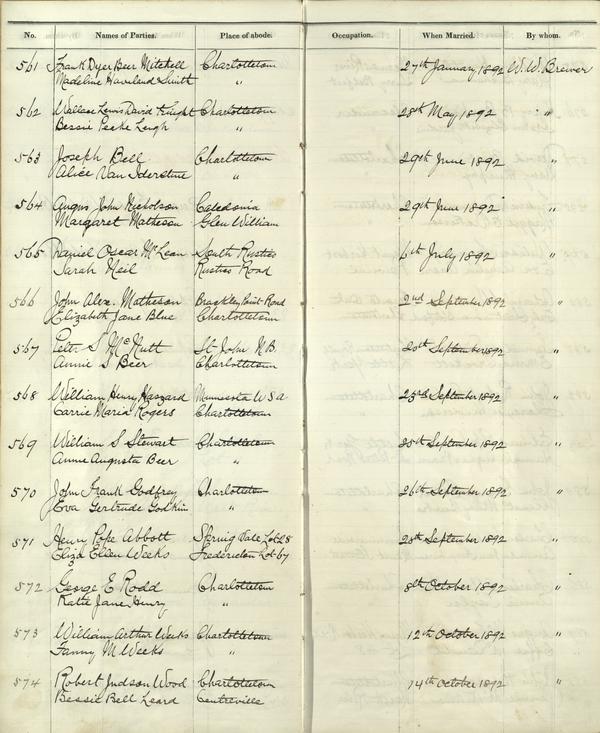 No. Names of Parties. Place of abode. Occupation. When Married. By whom.
561 Frank Dyer Beer Mitchell Charlottetown 27th January 1892 W. W. Brewer
Madeline Haviland Smith "
562 Wallace Lewis David Knight Charlottetown 28th May 1892 "
Bessie Peake Leigh "
563 Joseph Bell Charlottetown 29th June 1892 "
Alice Van Iderstine "
564 Angus John Nicholson Caledonia 29th June 1892 "
Margaret Matheson Glen William
565 Daniel Oscar McLean South Rustico 6th July 1892 "
Sarah Neil Rustico Road
566 John Alex. Matheson Brackley Point Road 2nd September 1892 "
Elizabeth Jane Blue Charlottetown
567 Peter S McNutt St. John N.B. 20th September 1892 "
Annie S Beer Charlottetown
568 William Henry Haszard Minnesota USA September 1892 "
Carrie Maria Rogers Charlottetown
569 William S Stewart Charlottetown September 1892 "
Annie Augusta Beer "
570 John Frank Godfrey Charlottetown 26th September 1892 "
Eva Gertrude Godkin "
571 Henry Pope Abbott Spring Vale September 1892 "
Eliza Ellen Weeks Fredericton Lot 67
572 George E Rodd Charlottetown 8th October 1892 "
Katie Jane Henry "
573 William Arthur Weeks Charlottetown 12th October 1892 "
Fanny M. Weeks "
574 Robert Judson Wood Charlottetown 14th October 1892 "
Bessie Bell Leard Centreville